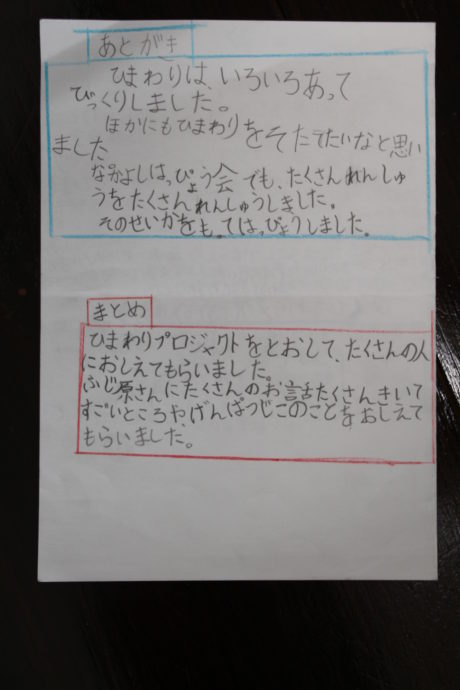 あとがき
ひまわりは、いろいろあって
びっくりしました。
ほかにもひまわりをそだてたいなと思い
ました
なかよしはっぴょう会でも、たくさんれんしゅ
うをたくさんれんしゅうしました。
そのせいかをもってはっぴょうしました。
まとめ
ひまわりプロジェクトをとおして、たくさんの人
におしえてもらいました。
ふじ原さんにたくさんのお話たくさんきいて
すごいところや、げんぱつじこのことをおしえて
もらいました。